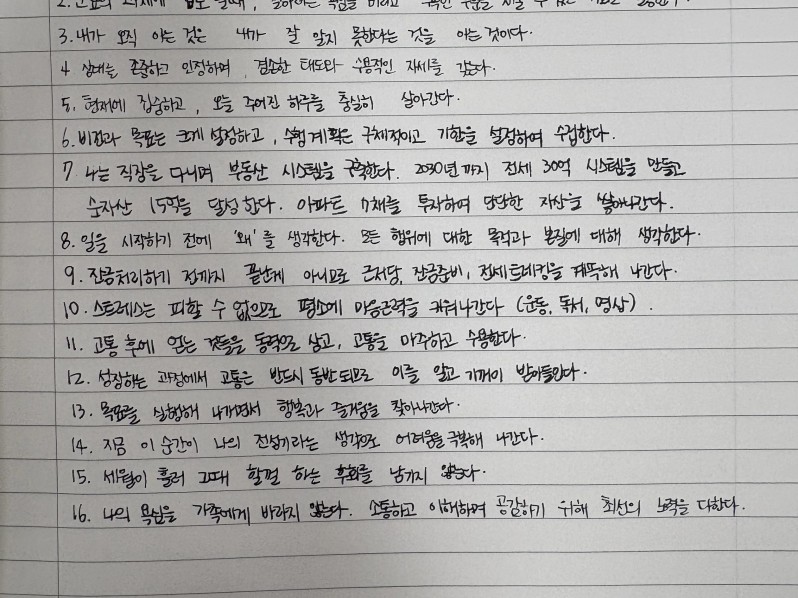 3. 내가 오직 아는 것은 내가 잘 알지 못한다는 것을 아는 것이다.
4 상대를 존중하고 인정하며, 겸손한 태도와 수용적인 자세를 갖는다.
5. 현재에 집중하고, 오늘 주어진 하루를 충실히 살아간다.
6. 비전과 목표는 크게 설정하고, 수행계획은 구체적이고 기한을 설정하여 수립한다.
7 나는 직장을 다니며 부동산 시스템을 구축한다. 2030년까지 전세 30억 시스템을 만들고
순자산 15억을 달성한다. 아파트 7채를 투자하여 단단한 자산을 쌓아나간다.
8. 일을 시작하기 전에 '왜'를 생각한다. 모든 행위에 대한 목적과 본질에 대해 생각한다.
9. 잔금처리하기 전까지 끝난게 아니므로 근저당, 잔금준비, 전세트레킹을 계속해 나간다.
10. 스트레스는 피할 수 없으므로 평소에 마음근력을 키워나간다 (운동, 독서, 명상).
11. 고통 후에 얻는 것들을 동력으로 삼고, 고통을 마주하고 수용한다.
12. 성장하는 과정에서 고통은 반드시 동반되므로 이를 알고 기꺼이 받아들인다.
13. 목표를 실행해 나가면서 행복과 즐거움을 찾아나간다.
14. 지금 이 순간이 나의 전성기라는 생각으로 어려움을 극복해 나간다.
15. 세월이 흘러 그때 할껄 하는 후회를 남기지 않는다.
16. 나의 욕심을 가족에게 바라지 않는다. 소통하고 이해하며 공감하기 위해 최선의 노력을 다한다.